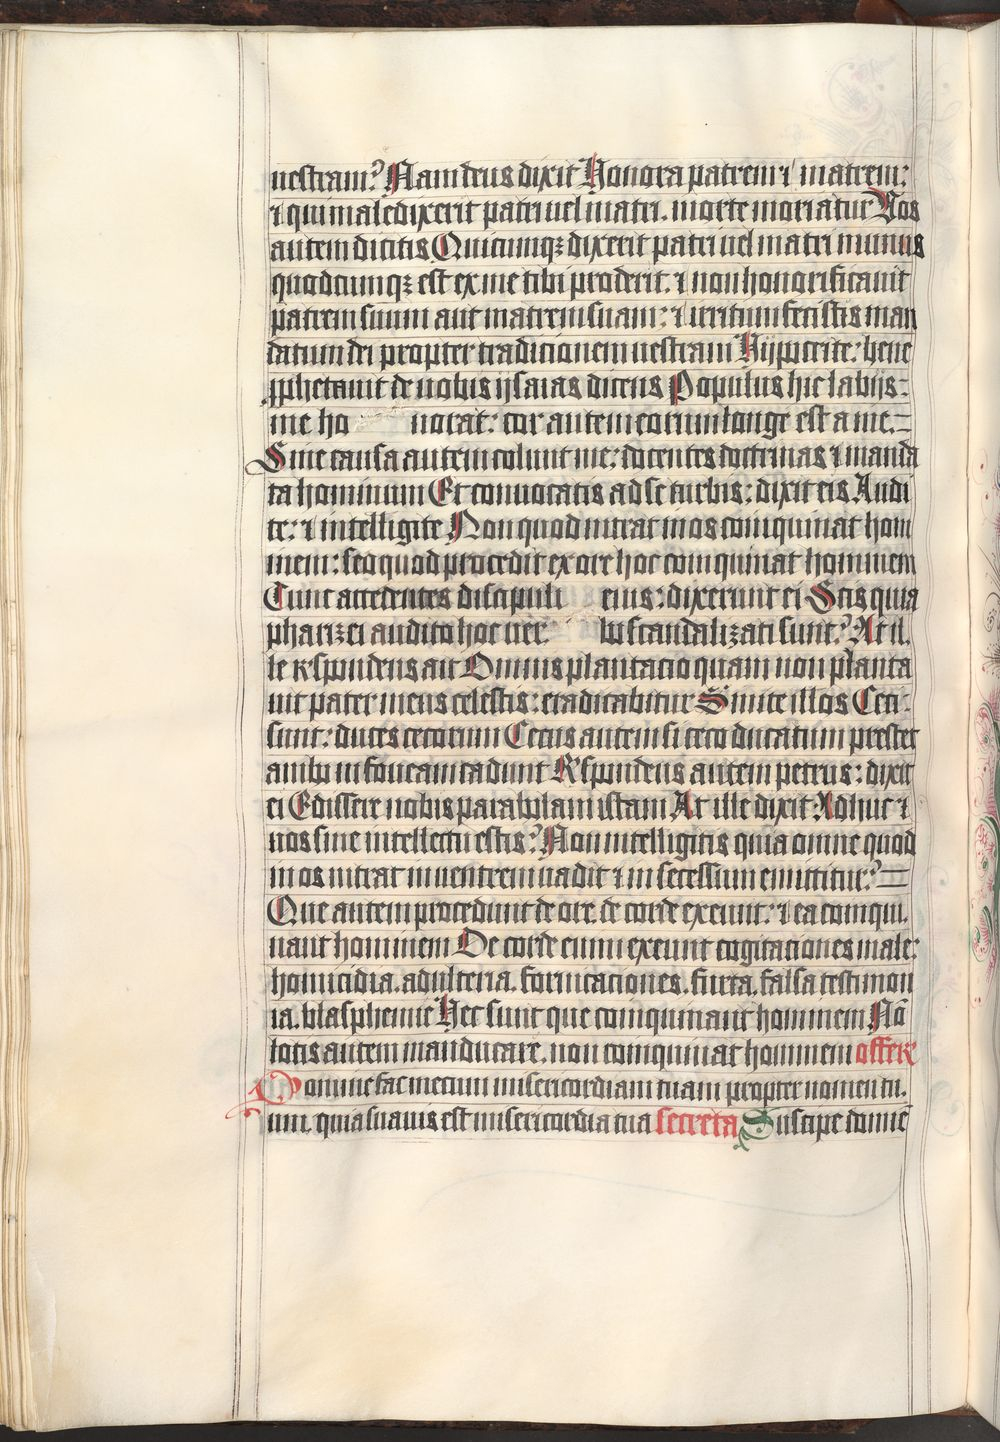 uestram? Nam deus dixit Honora patrem ⁊ matrem:
⁊ qui maledixerit patri uel matri. morte moriatur Vos
autem dicitis Quicumqꝫ dixerit patri uel matri munus
quodcumqꝫ est ex me tibi proderit. ⁊ non honorificauit
patrem suum aut matrem suam: ⁊ irritum fecistis man
datum dei propter tradicionem uestram Hypocrite: bene
ꝓphetauit de uobis ysaias dicens Populus hic labijs:
me ho norat: cor autem eorum longe est a me.
Sine causa autem colunt me: docentes doctrinas ⁊ manda
ta hominum Et conuocatis ad se turbis: dixit eis Audi
te: ⁊ intelligite Non quod intrat in os coinquinat hom
inem: sed quod procedit ex ore hoc coinquinat hominem
Tunc accedentes discipuli eius: dixerunt ei Scis quia
pharizei audito hoc uer bo scandalizati sunt? At il.
le respondens ait Omnis plantacio quam non planta
uit pater meus celestis: eradicabitur Sinite illos Ceci
sunt: duces cecorum Cecus autem si ceco ducatum prestet
ambo in foueam cadunt Respondens autem petrus: dixit
ei Edissere nobis parabolam istam At ille dixit Adhuc ⁊
uos sine intellectu estis? Non intelligitis quia omne quod
in os intrat in uentrem uadit ⁊ in secessum emittitur?
Que autem procedunt de ore. de corde exeunt: ⁊ ea coinqui.
nant hominem De corde enim exeunt cogitaciones male:
homicidia. adulteria. fornicaciones. furta. falsa testimon
ia. blasphemie Hec sunt que coinquinant hominem Nō
lotis autem manducare. non coinquinat hominem offer
Domine fac mecum misericordiam tuam propter nomen tu.
um. quia suauis est misericordia tua secreta Suscipe domīe